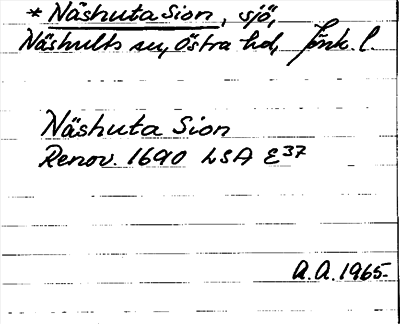 * Näshuta Sion, sjö,
Näshults sn, Östra hd, Jönk. l.
Näshuta Sion
Renov. 1690 LSA E37
A.A. 1965.